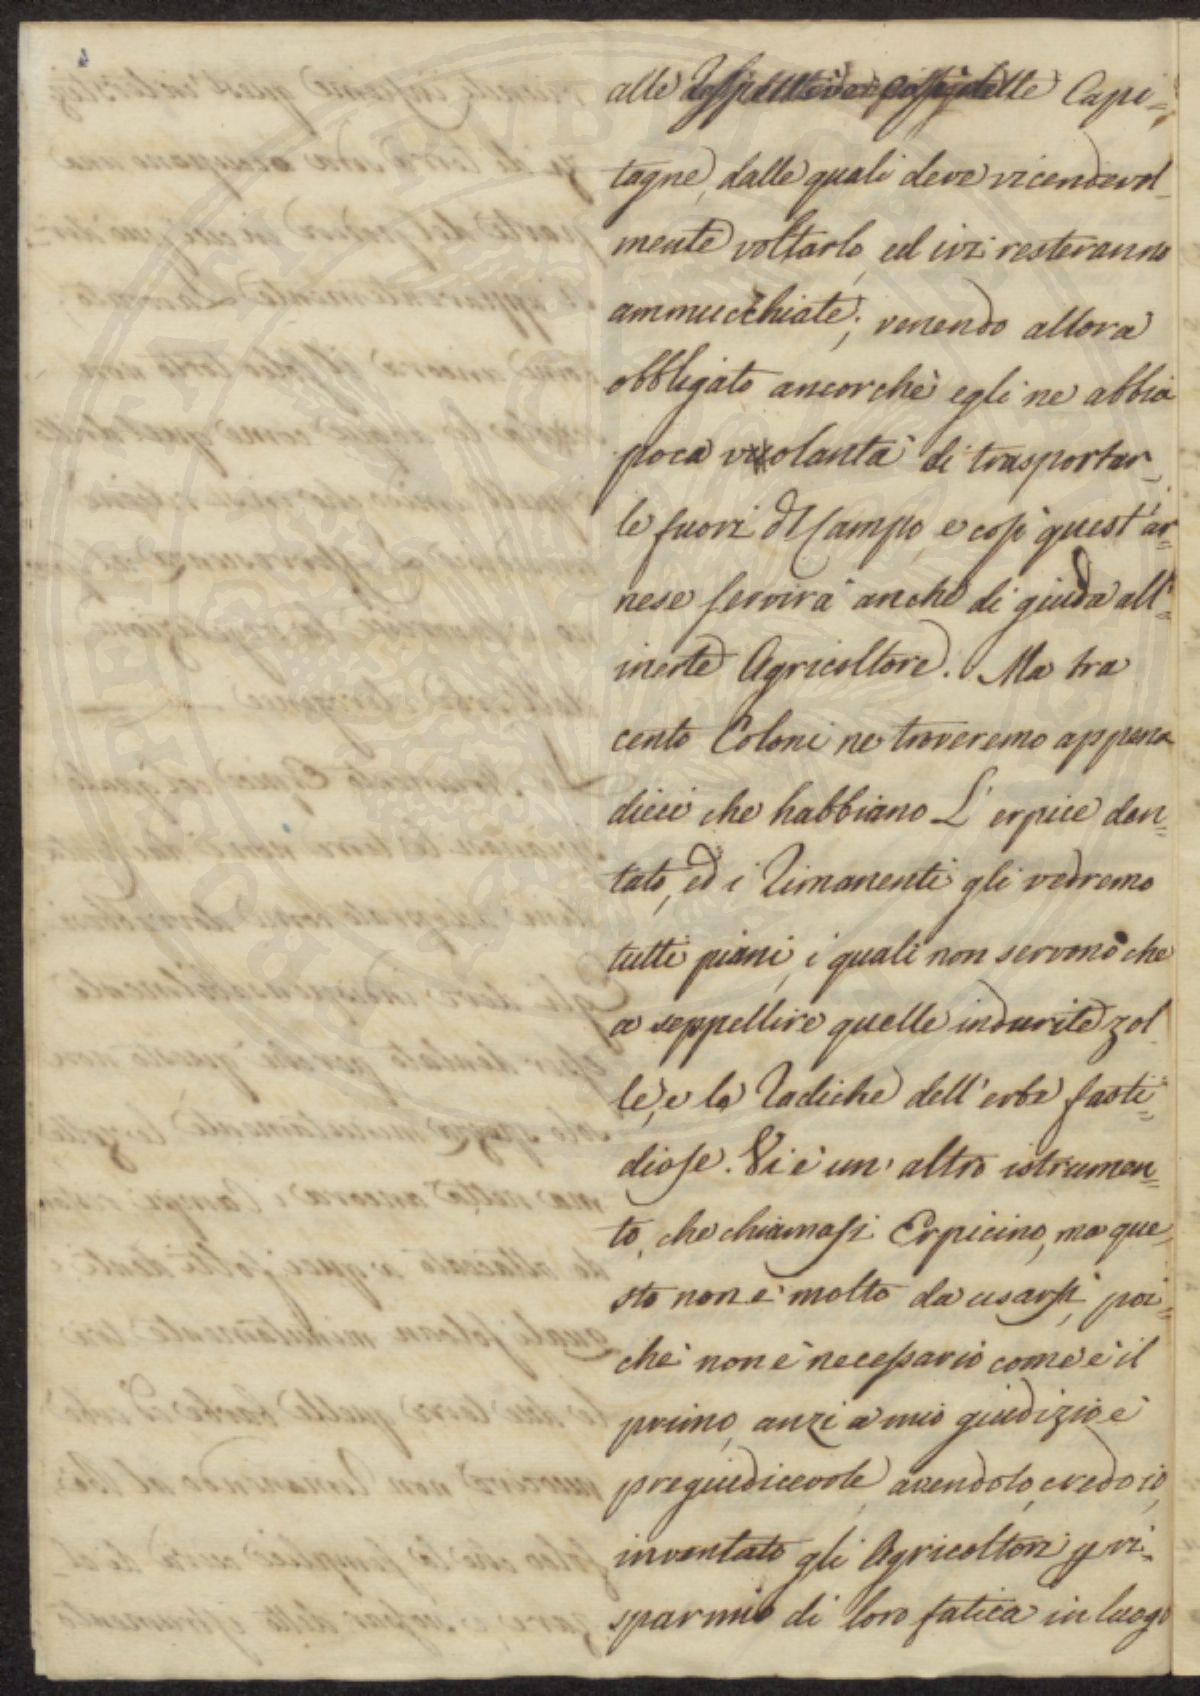 alle Capi=
tagne, dalle quali deve vicendevol-
mente voltarlo, ed ivi resteranno
ammucchiate; venendo allora
obbligato ancorchè egli ne abbia
poca volantà di trasportar-
le fuori del Campo, e così quest'ar=
nese servirà anche di giuda all'=
inerte Agricoltore. Ma tra
cento Coloni ne troveremo appena
dieci che habbiano L'erpice den=
tato, ed i rimanenti gli vedremo
tutti piani, i quali non servono che
a seppellire quelle indurite zol-
le, e le radiche dell'erbe fasti=
diose. Vi è un'altro istrumen=
to, che chiamasi Erpicino, ma que-
sto non è molto da usarsi, poi=
chè non è necessario come è il
primo, anzi a mio giudizio è
pregiudicevole avendolo, credo io,
inventato gli Agricoltori p ri-
sparmio di loro fatica in luogo